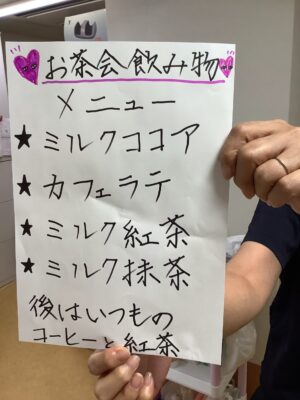 お茶会飲み物
メニュー
★ミルクココア
★カフェラテ
★ミルク紅茶
★ミルク抹茶
後はいつもの
コーヒーと紅茶